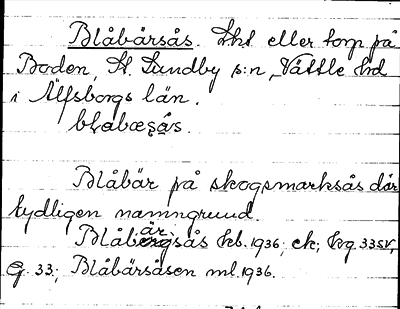 Blåbärsås. Lht eller torp på
Boden, St. Lundby s:n, Vättle hd
i Älfsborgs län.
blabæsås.
Blåbär på skogsmarksås där
tydligen namngrund.
Blåbärsås hb. 1936; ek; hg. 33SV,
G. 33.; Blåbärsåsen ml. 1936.